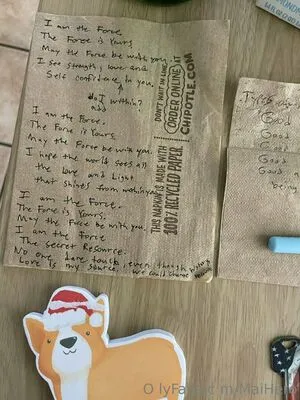 I am the Force.
The Force is Yours.
May the Force be with you.
I see strength, love and
Self confidence in you.
do I within?
I am the Force.
The Force is Yours.
May the Force be with you.
I hope the world sees all
the Love and Light
that shines from within you.
I am the Force.
The Force is Yours.
May the Force be with you
I am the Force
The Secret Resource.
No one dare touch, even though
Love is my source. we could change history
DON'T WAIT IN LINE
ORDER ONLINE AT
CHIPOTLE.COM
THIS NAPKIN IS MADE WITH
100% RECYCLED PAPER
Good
Good
Good
Good
being